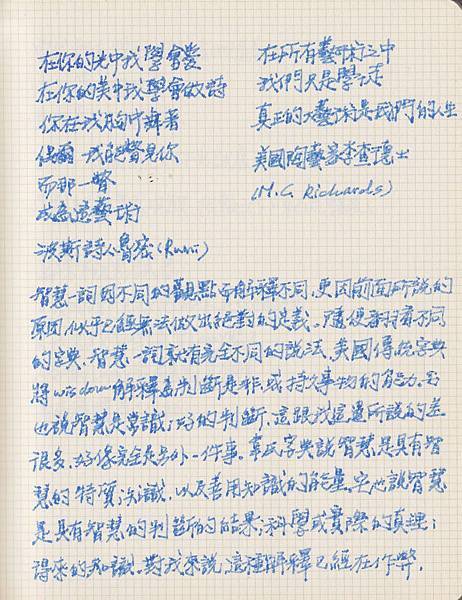 在你的光中我學會愛
在你的美中我學會做詩
你在我胸中舞著
偶爾 我能瞥見你
而那一瞥
成為這藝術
波斯詩人魯密(Rumi)
在所有藝術之中
我們只是學徒
真正的大藝術是我們的人生
美國陶藝家李查德士
(M.C. Richards)
智慧一詞因不同的觀點而解釋不同,更因前面所說的
原因似乎已經無法做出絕對的定義。隨便翻有不同
的字典,智慧一詞就有完全不同的說法,美國傳統字典
將wisdom解釋為判斷是非或持久事物的能力.它
也說智慧是常識;好的判斷,這跟我這邊所說的差
很多,好像完全是另外一件事。韋氏字典說智慧是具有智
慧的特質;知識,以及善用知識的能量,它也說智慧
是具有智慧的判斷的結果;科學或實際的真理;
得來的知識.對我來說,這種解釋已經在作弊,